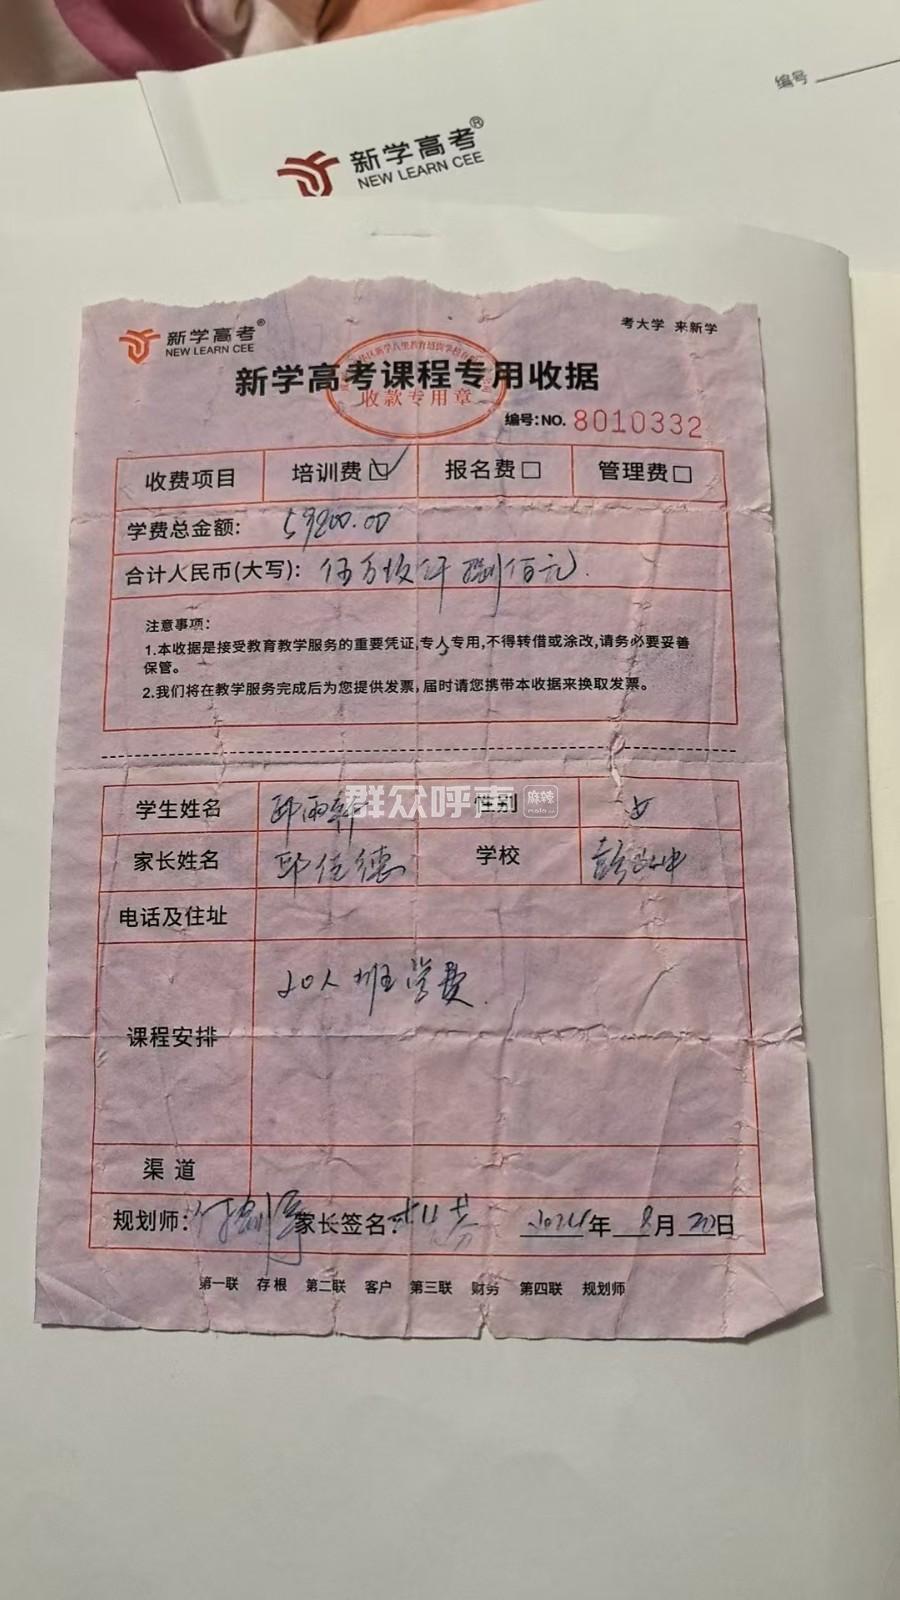 编号
新学高考®
NEW LEARN CEE
新学高考®
NEW LEARN CEE
考大学 来新学
新学高考课程专用收据
收款专用章
编号:NO. 8010332
收费项目 培训费☑ 报名费□ 管理费□
学费总金额: 59800.00
合计人民币(大写): 伍万玖仟捌佰元.
注意事项:
1.本收据是接受教育教学服务的重要凭证,专人专用,不得转借或涂改,请务必要妥善
保管。
2.我们将在教学服务完成后为您提供发票,届时请您携带本收据来换取发票。
群众呼声 麻辣
学生姓名 邱雨轩 性别 女
家长姓名 邱佳德 学校
电话及住址
课程安排 20人班学费.
渠道
规划师: 家长签名: 2024年 8月 20日
第一联 存根 第二联 客户 第三联 财务 第四联 规划师